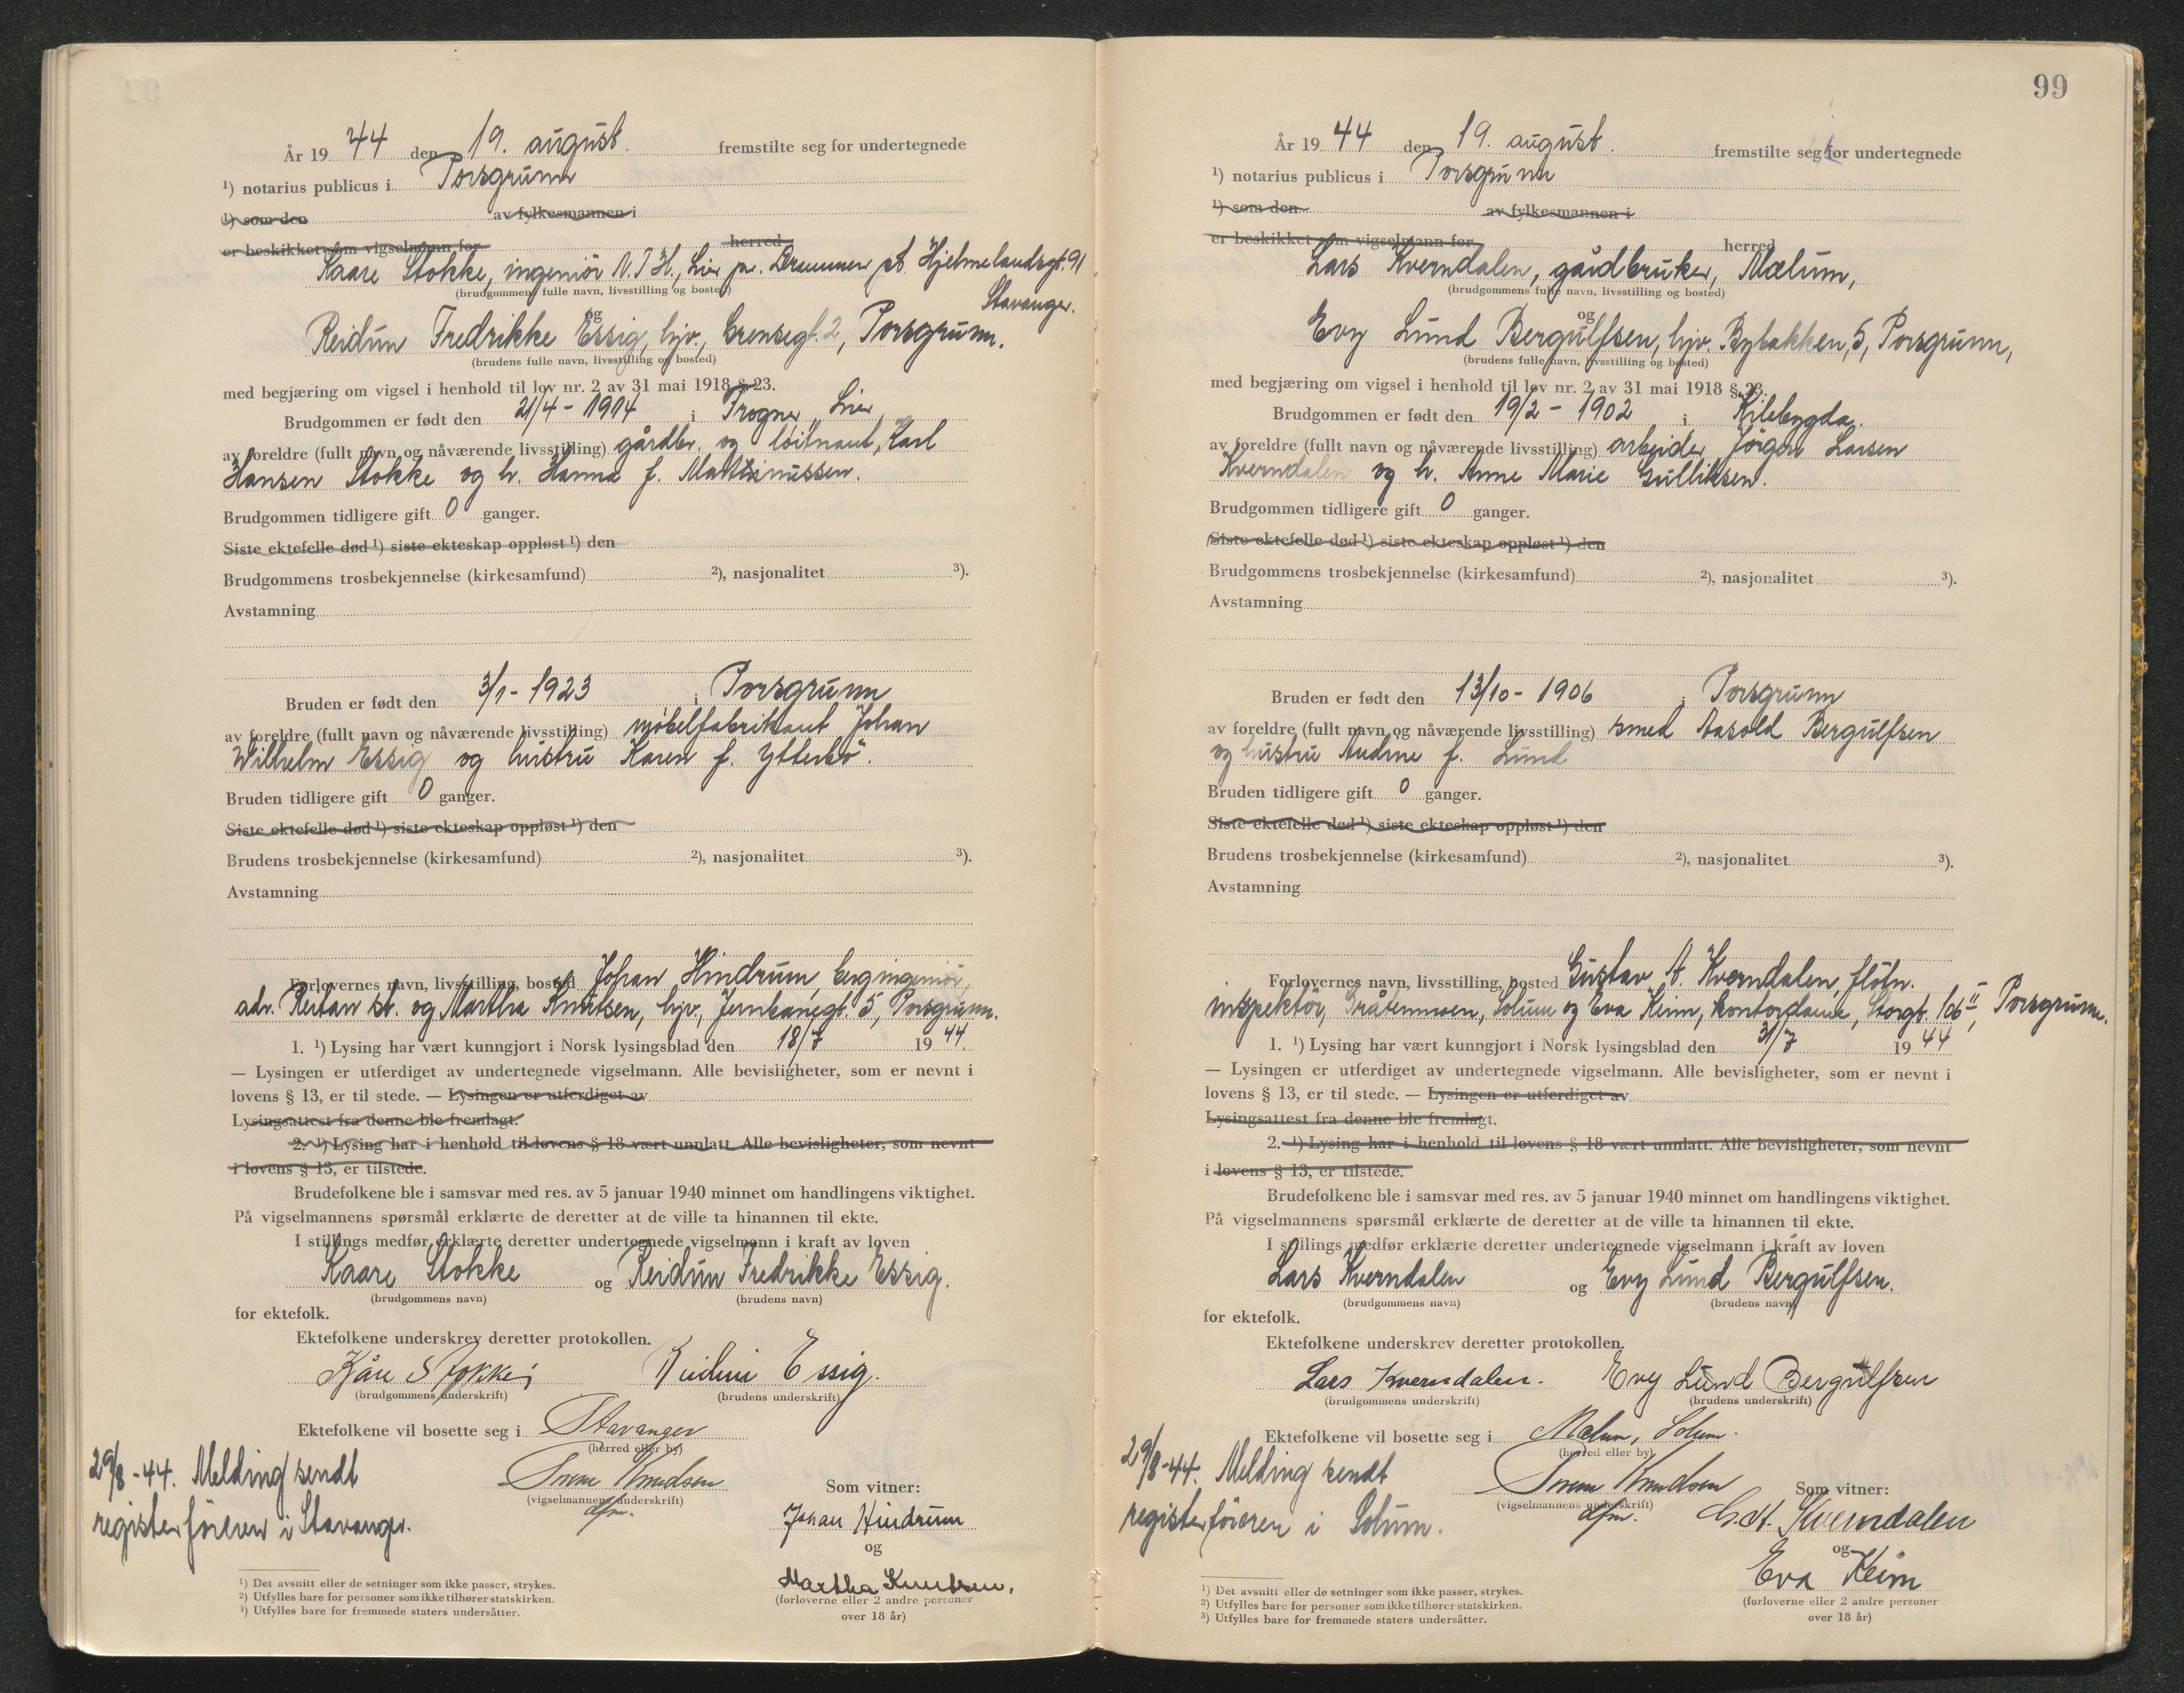 År 19 44 den 19. august. fremstilte seg for undertegnede
¹) notarius publicus i Porsgrunn
¹) som den av fylkesmannen i
er beskikket som vigselmann for herred
Kaare Stokke, ingeniör N.T.H., Lier pr. Drammen pt. Hjelmelandsgt. 91
(brudgommens fulle navn, livsstilling og bosted)
Stavanger.
og
Reidun Fredrikke Essig, hjv., Grensegt. 2, Porsgrunn.
(brudens fulle navn, livsstilling og bosted)
med begjæring om vigsel i henhold til lov nr. 2 av 31 mai 1918 § 23.
Brudgommen er født den 21/4 - 1914 i Frogner, Lier,
av foreldre (fullt navn og nåværende livsstilling) gårdbr. og löitnant, Karl
Hansen Stokke og h. Hanna f. Mathinussen.
Brudgommen tidligere gift 0 ganger.
Siste ektefelle død ¹) siste ekteskap oppløst ¹) den
Brudgommens trosbekjennelse (kirkesamfund) ²), nasjonalitet ³).
Avstamning
Bruden er født den 3/1 - 1923 i Porsgrunn
av foreldre (fullt navn og nåværende livsstilling) möbelfabrikant Johan
Wilhelm Essig og hustru Karen f. Ytterbö.
Bruden tidligere gift 0 ganger.
Siste ektefelle død ¹) siste ekteskap oppløst ¹) den
Brudens trosbekjennelse (kirkesamfund) ²), nasjonalitet ³).
Avstamning
Forlovernes navn, livsstilling, bosted Johan Hindrum, bergingeniör,
adr. Reitan st. og Martha Knutsen, hjv., Jernbanegt. 5, Porsgrunn.
1. ¹) Lysing har vært kunngjort i Norsk lysingsblad den 18/7 19 44.
— Lysingen er utferdiget av undertegnede vigselmann. Alle bevisligheter, som er nevnt i
lovens § 13, er til stede. — Lysingen er utferdiget av
Lysingsattest fra denne ble fremlagt.
2. ¹) Lysing har i henhold til lovens § 18 vært unnlatt. Alle bevisligheter, som nevnt
i lovens § 13, er tilstede.
Brudefolkene ble i samsvar med res. av 5 januar 1940 minnet om handlingens viktighet.
På vigselmannens spørsmål erklærte de deretter at de ville ta hinannen til ekte.
I stillings medfør erklærte deretter undertegnede vigselmann i kraft av loven
Kaare Stokke og Reidun Fredrikke Essig.
(brudgommens navn) (brudens navn)
for ektefolk.
Ektefolkene underskrev deretter protokollen.
Kåre Stokke Reidun Essig.
(brudgommens underskrift) (brudens underskrift)
Ektefolkene vil bosette seg i Stavanger
(herred eller by)
29/8 - 44. Melding sendt
registerföreren i Stavanger.
Knudsen
(vigselmannens underskrift)
dfm.
Som vitner:
Johan Hindrum
og
Martha Knutsen.
(forloverne eller 2 andre personer
over 18 år)
¹) Det avsnitt eller de setninger som ikke passer, strykes.
²) Utfylles bare for personer som ikke tilhører statskirken.
³) Utfylles bare for fremmede staters undersåtter.
99
År 19 44 den 19. august. fremstilte seg for undertegnede
¹) notarius publicus i Porsgrunn
¹) som den av fylkesmannen i
er beskikket som vigselmann for herred
Lars Kverndalen, gårdbruker, Mælum,
(brudgommens fulle navn, livsstilling og bosted)
og
Evy Lund Bergulfsen, hjv. Bybakken, 5, Porsgrunn,
(brudens fulle navn, livsstilling og bosted)
med begjæring om vigsel i henhold til lov nr. 2 av 31 mai 1918 § 23.
Brudgommen er født den 19/2 - 1902 i Kilebygda.
av foreldre (fullt navn og nåværende livsstilling) arbeider Jörgen Larsen
Kverndalen og h. Anne Marie Gulliksen.
Brudgommen tidligere gift 0 ganger.
Siste ektefelle død ¹) siste ekteskap oppløst ¹) den
Brudgommens trosbekjennelse (kirkesamfund) ²), nasjonalitet ³).
Avstamning
Bruden er født den 13/10 - 1906 i Porsgrunn
av foreldre (fullt navn og nåværende livsstilling) smed Aasold Bergulfsen
og hustru Andrine f. Lund
Bruden tidligere gift 0 ganger.
Siste ektefelle død ¹) siste ekteskap oppløst ¹) den
Brudens trosbekjennelse (kirkesamfund) ²), nasjonalitet ³).
Avstamning
Forlovernes navn, livsstilling, bosted Gustav A. Kverndalen, flötn.
inspektör, Gråtenmoen, Solum og Eva Keim, kontordame, Storgt. 106 II, Porsgrunn.
1. ¹) Lysing har vært kunngjort i Norsk lysingsblad den 31/7 19 44
— Lysingen er utferdiget av undertegnede vigselmann. Alle bevisligheter, som er nevnt i
lovens § 13, er til stede. — Lysingen er utferdiget av
Lysingsattest fra denne ble fremlagt.
2. ¹) Lysing har i henhold til lovens § 18 vært unnlatt. Alle bevisligheter, som nevnt
i lovens § 13, er tilstede.
Brudefolkene ble i samsvar med res. av 5 januar 1940 minnet om handlingens viktighet.
På vigselmannens spørsmål erklærte de deretter at de ville ta hinannen til ekte.
I stillings medfør erklærte deretter undertegnede vigselmann i kraft av loven
Lars Kverndalen og Evy Lund Bergulfsen.
(brudgommens navn) (brudens navn)
for ektefolk.
Ektefolkene underskrev deretter protokollen.
Lars Kverndalen. Evy Lund Bergulfsen
(brudgommens underskrift) (brudens underskrift)
Ektefolkene vil bosette seg i Mælum, Solum.
(herred eller by)
29/8 - 44. Melding sendt
registerföreren i Solum.
Knudsen
(vigselmannens underskrift)
dfm.
Som vitner:
G. A. Kverndalen
og
Eva Keim
(forloverne eller 2 andre personer
over 18 år)
¹) Det avsnitt eller de setninger som ikke passer, strykes.
²) Utfylles bare for personer som ikke tilhører statskirken.
³) Utfylles bare for fremmede staters undersåtter.